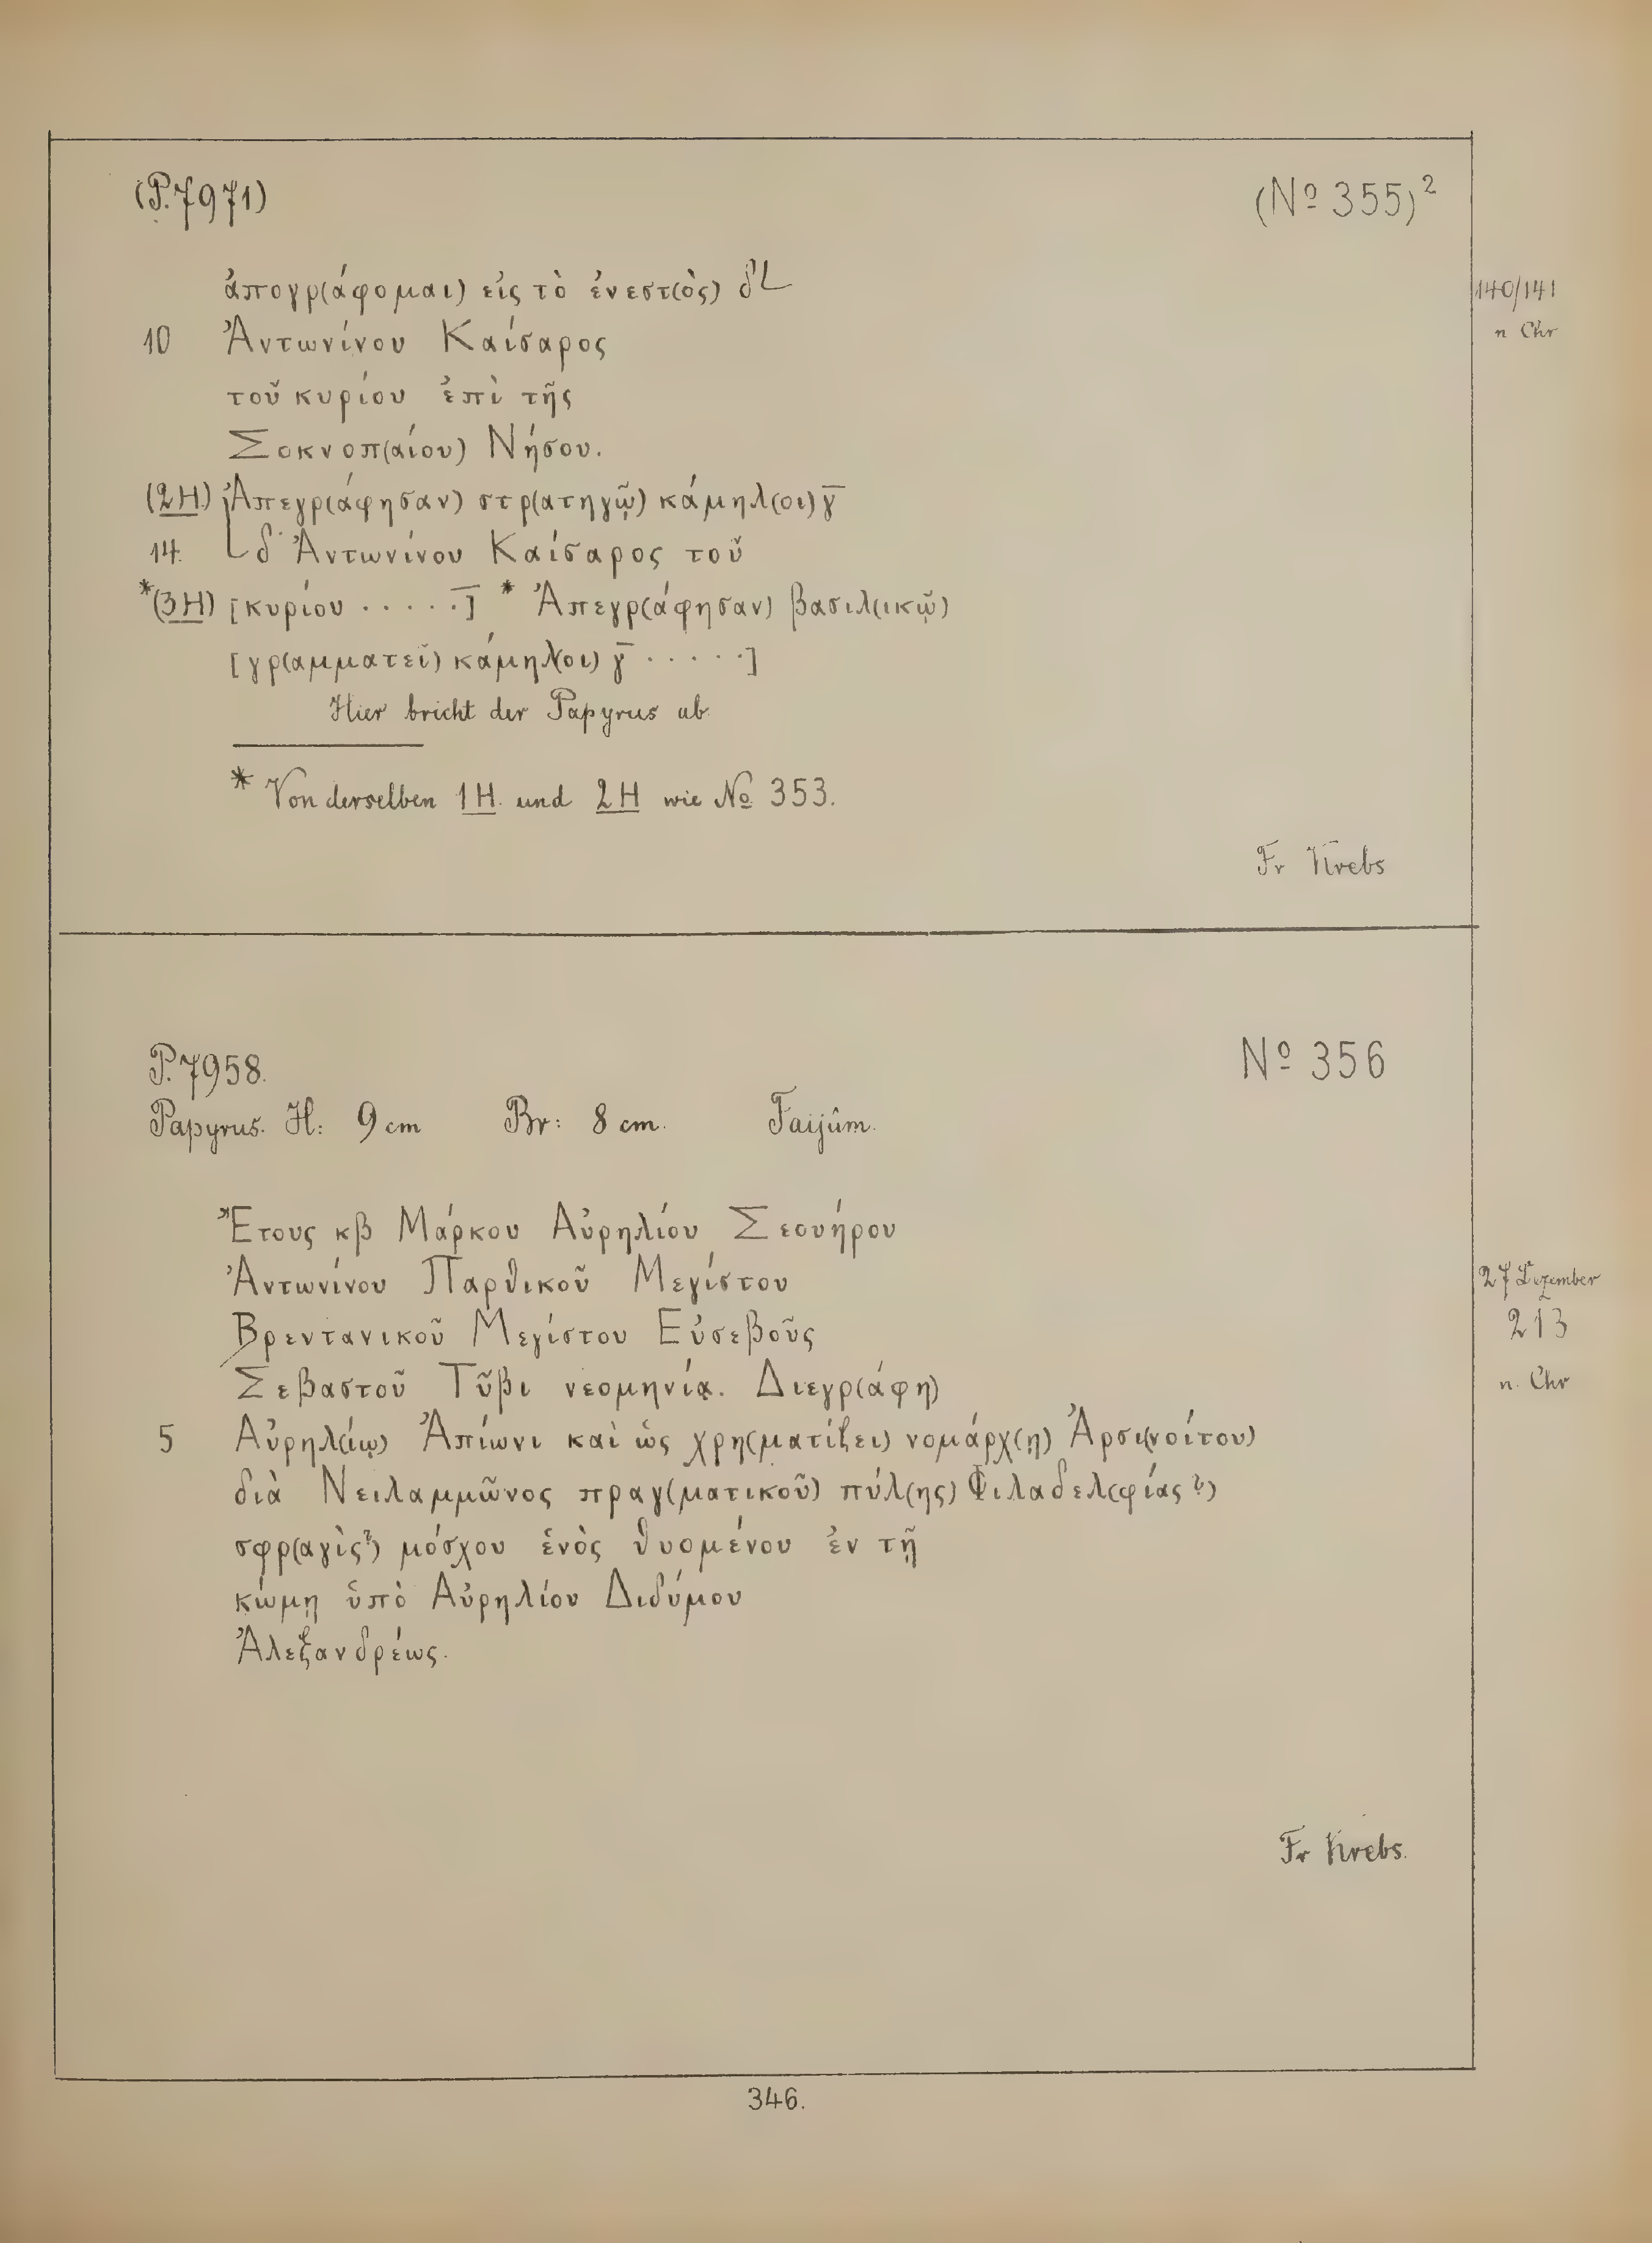 (P. 7971) (Nº 355)²
ἀπογρ(άφομαι) εἰς τὸ ἐνεστ(ὸς) δL
140/141
10 Ἀντωνίνου Καίσαρος
n Chr
τοῦ κυρίου ἐπὶ τῆς
Σοκνοπ(αίου) Νήσου.
(2H) Ἀπεγρ(άφησαν) στρ(ατηγῷ) κάμηλ(οι) γ̅
14. δ Ἀντωνίνου Καίσαρος τοῦ
*(3H) [κυρίου ·····] * Ἀπεγρ(άφησαν) βασιλ(ικῷ)
[γρ(αμματεῖ) κάμηλ(οι) γ̅ ·····]
Hier bricht der Papyrus ab
* Von derselben 1H. und 2H wie Nº 353.
Fr Krebs
P. 7958. Nº 356
Papyrus. H: 9 cm Br: 8 cm. Faijûm.
Ἔτους κβ Μάρκου Αὐρηλίου Σεουήρου
Ἀντωνίνου Παρθικοῦ Μεγίστου
27 Dezember
Βρεντανικοῦ Μεγίστου Εὐσεβοῦς
213
Σεβαστοῦ Τῦβι νεομηνίᾳ. Διεγρ(άφη)
n. Chr
5 Αὐρηλ(ίῳ) Ἀπίωνι καὶ ὡς χρη(ματίζει) νομάρχ(ῃ) Ἀρσι(νοίτου)
διὰ Νειλαμμῶνος πραγ(ματικοῦ) πύλ(ης) Φιλαδελ(φίας?)
σφρ(αγὶς?) μόσχου ἑνὸς θυομένου ἐν τῇ
κώμῃ ὑπὸ Αὐρηλίου Διδύμου
Ἀλεξανδρέως.
Fr Krebs.
346.